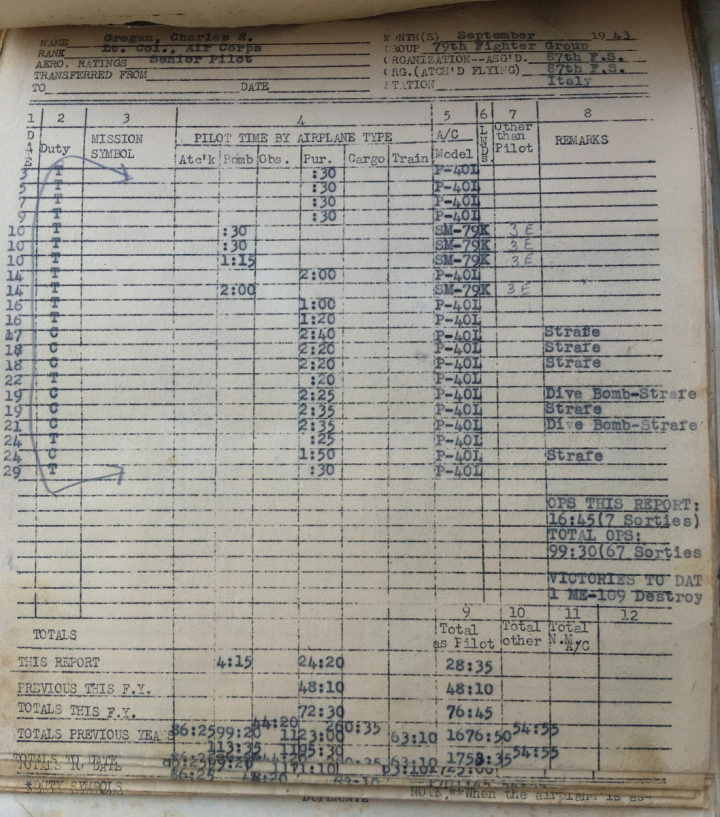 NAME Grogan, Charles E. MONTH(S) September 1943
RANK Lt. Col., Air Corps GROUP 79th Fighter Group
AERO. RATINGS Senior Pilot ORGANIZATION--ASG'D. 87th F.S.
TRANSFERRED FROM ORG.(ATCH'D FLYING) 87th F.S.
TO DATE STATION Italy
1 2 3 4 5 6 7 8
DATE Duty MISSION SYMBOL PILOT TIME BY AIRPLANE TYPE A/C Model LNDS. Other than Pilot REMARKS
Atc'k Bomb Obs. Pur. Cargo Train
3 T :30 P-40L
5 T :30 P-40L
7 T :30 P-40L
9 T :30 P-40L
10 T :30 SM-79K 3E
10 T :30 SM-79K 3E
10 T 1:15 SM-79K 3E
14 T 2:00 P-40L
14 T 2:00 SM-79K 3E
16 T 1:00 P-40L
16 T 1:20 P-40L
17 C 2:40 P-40L Strafe
18 C 2:20 P-40L Strafe
18 C 2:20 P-40L Strafe
22 T :20 P-40L
19 C 2:25 P-40L Dive Bomb-Strafe
19 C 2:35 P-40L Strafe
21 C 2:35 P-40L Dive Bomb-Strafe
24 T :25 P-40L
24 C 1:50 P-40L Strafe
29 T :30 P-40L
OPS THIS REPORT:
16:45(7 Sorties)
TOTAL OPS:
99:30(67 Sorties
VICTORIES TO DAT
1 ME-109 Destroy
9 10 11 12
TOTALS Total as Pilot Total other Total N.M. A/C
THIS REPORT 4:15 24:20 28:35
PREVIOUS THIS F.Y. 48:10 48:10
TOTALS THIS F.Y. 72:30 76:45
TOTALS PREVIOUS YEA 86:25 99:20 44:20 1123:00 260:35 63:10 1676:50 54:55
TOTALS TO DATE 113:35 1195:30 63:10 54:55
86:25
*DUTY SYMBOLS
DUPLICATE NOTE, **When the airplane is as-